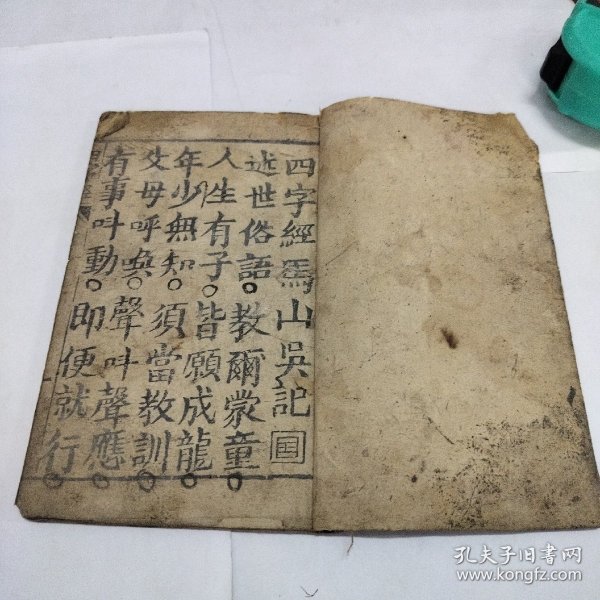 四字經馬山吳記
近世俗語。教爾蒙童。
人生有子。皆願成龍。
年少無知。須當教訓。
父母呼喚。聲叫聲應。
有事叫動。即便就行。
孔夫子旧书网
www.kongfz.com